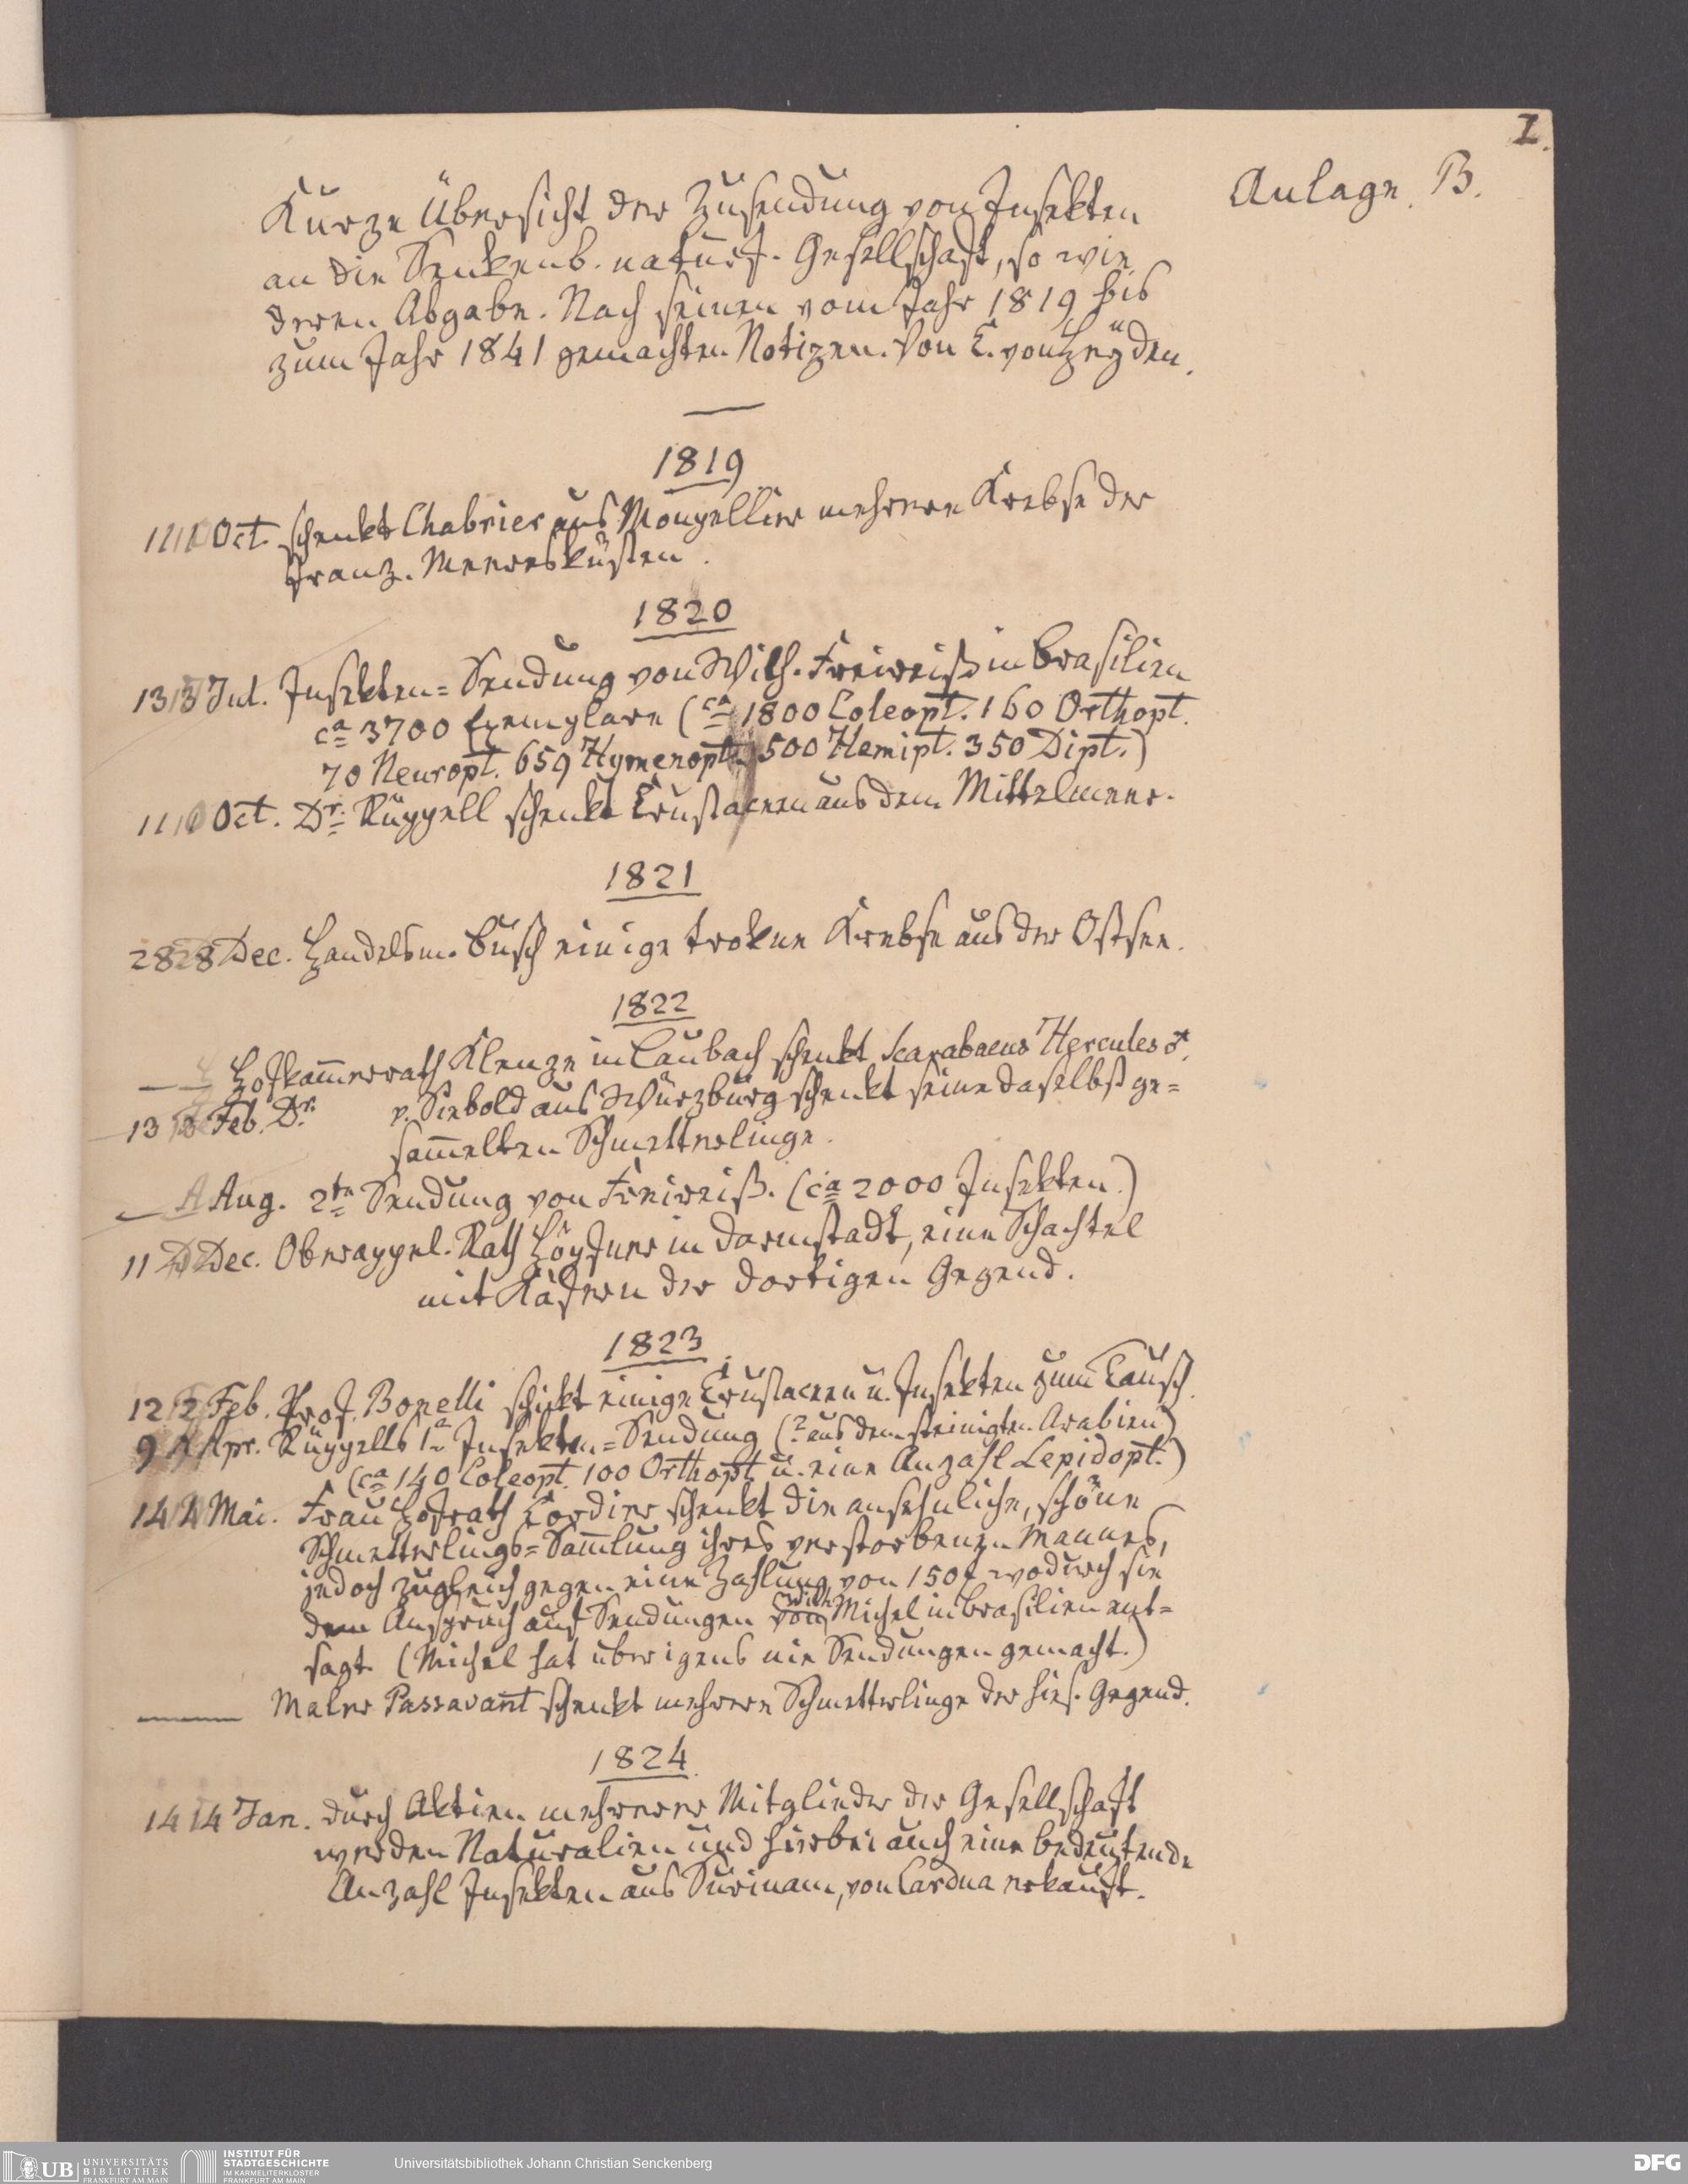 I.
Anlage. B.
Kurze Übersicht der Zusendung von Insekten
an die Senkenb. naturf. Gesellschaft, so wie
deren Abgabe. Nach seinen vom Jahr 1819 bis
zum Jahr 1841 gemachten Notizen. Von C. von Heyden.
1819
11 Oct. schenkt Chabrier aus Monpellier mehrere Krebse der
franz. Meeresküsten.
1820
13 Jul. Insekten=Sendung von Wilh. Freireiß in Brasilien
ca 3700 Exemplare (ca 1800 Coleopt. 160 Orthopt.
70 Neuropt. 659 Hymenopt. 500 Hemipt. 350 Dipt.)
11 Oct. Dr. Rüppell schenkt Crustaceen aus dem Mittelmeer.
1821
28 Dec. Handelsm. Busch einige trokene Krebse aus der Ostsee.
1822
— Hofkam̅errath Klenze in Laubach schenkt Scarabaeus Hercules ♂.
13 Feb. Dr. v. Siebold aus Würzburg schenkt seine daselbst ge=
sam̅elten Schmetterlinge.
— Aug. 2te Sendung von Freireiß. (ca 2000 Insekten.)
11 Dec. Oberappel. Rath Höpfner in Darmstadt, eine Schachtel
mit Käfern der dortigen Gegend.
1823.
12 Feb. Prof. Bonelli schikt einige Crustaceen u. Insekten zum Tausch.
9 Apr. Rüppells 1te Insekten=Sendung (? aus dem steinigten Arabien)
(ca 140 Coleopt. 100 Orthopt u. eine Anzahl Lepidopt.)
14 Mai. Frau Hofrath Cordier schenkt die ansehnliche, schöne
Schmetterlings=Sam̅lung ihres verstorbenen Mannes,
jedoch zugleich gegen eine Zahlung von 150 f wodurch sie
dem Anspruch auf Sendungen von Wilh. Michel in Brasilien ent=
sagt. (Michel hat überigens nie Sendungen gemacht.)
— Maler Passavant schenkt mehrere Schmetterlinge der hies. Gegend.
1824.
14 Jan. durch Aktien mehrerer Mitglieder der Gesellschaft
werden Naturalien und hierbei auch eine bedeutende
Anzahl Insekten aus Surinam, von Cardua erkauft.
UB UNIVERSITÄTS BIBLIOTHEK FRANKFURT AM MAIN
INSTITUT FÜR STADTGESCHICHTE IM KARMELITERKLOSTER FRANKFURT AM MAIN
Universitätsbibliothek Johann Christian Senckenberg
DFG